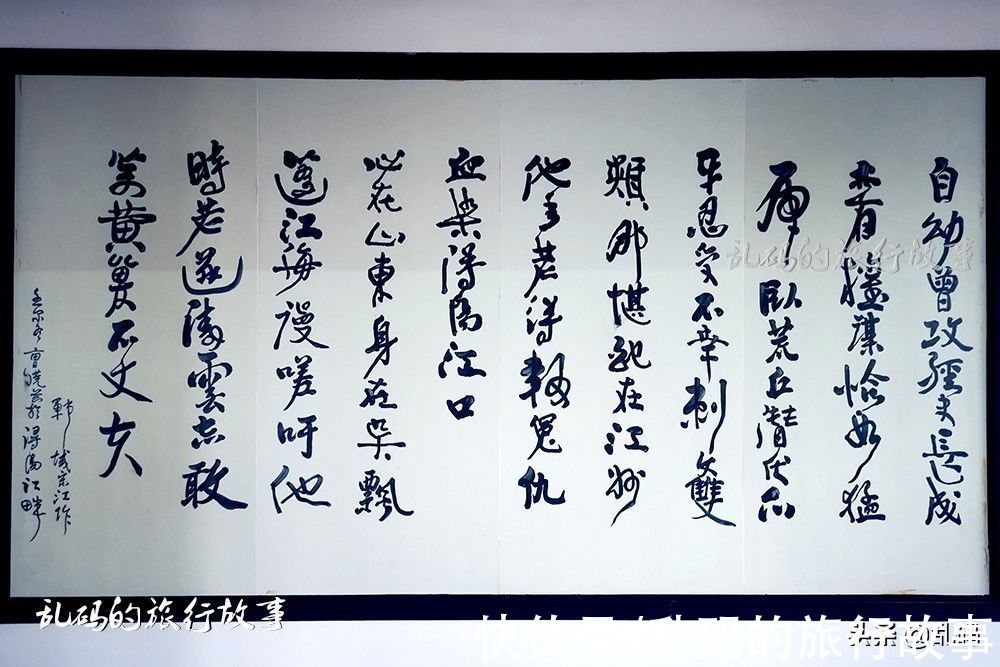 自幼曾攻經史長成
亦有權謀恰如猛
虎卧荒丘潛伏爪
牙忍受不幸刺雙
頰那堪配在江州
他年若得報冤仇
血染潯陽江口
心在山東身在吳飄
蓬江海謾嗟吁他
時若遂凌雲志敢
笑黄巢不丈夫
鄆城宋江作
潯陽江畔
乱码的旅行故事
乱码的旅行故事
快传号/乱码的旅行故事
头条 @乱码